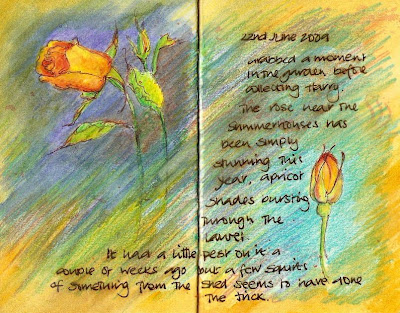 22nd June 2009
Grabbed a moment
in the garden before
collecting Harry.
The rose near the
summerhouses has
been simply
stunning this
year, apricot
shades bursting
through the
laurel.
It had a little pest on it a
couple of weeks ago but a few squirts
of something from the shed seems to have done
the trick.